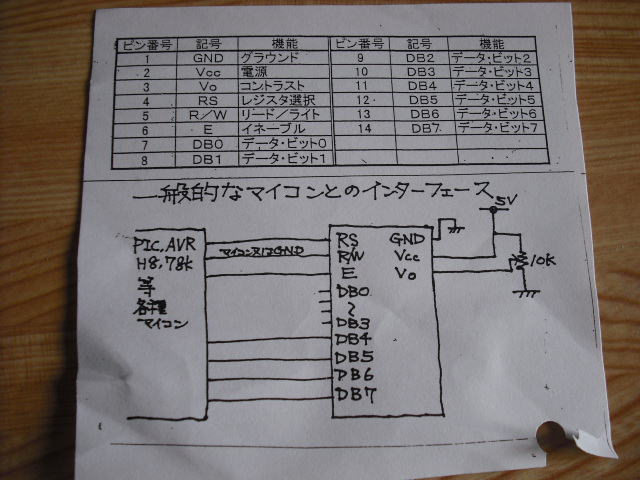 ピン番号 記号 機能 ピン番号 記号 機能
1 GND グラウンド 9 DB2 データ・ビット2
2 Vcc 電源 10 DB3 データ・ビット3
3 Vo コントラスト 11 DB4 データ・ビット4
4 RS レジスタ選択 12 DB5 データ・ビット5
5 R/W リード/ライト 13 DB6 データ・ビット6
6 E イネーブル 14 DB7 データ・ビット7
7 DB0 データ・ビット0
8 DB1 データ・ビット1
一般的なマイコンとのインターフェース
5V
PIC,AVR
H8,78K
等
各種
マイコン
マイコン又はGND
RS GND
R/W Vcc
E Vo
DB0
~
DB3
DB4
DB5
DB6
DB7
10K